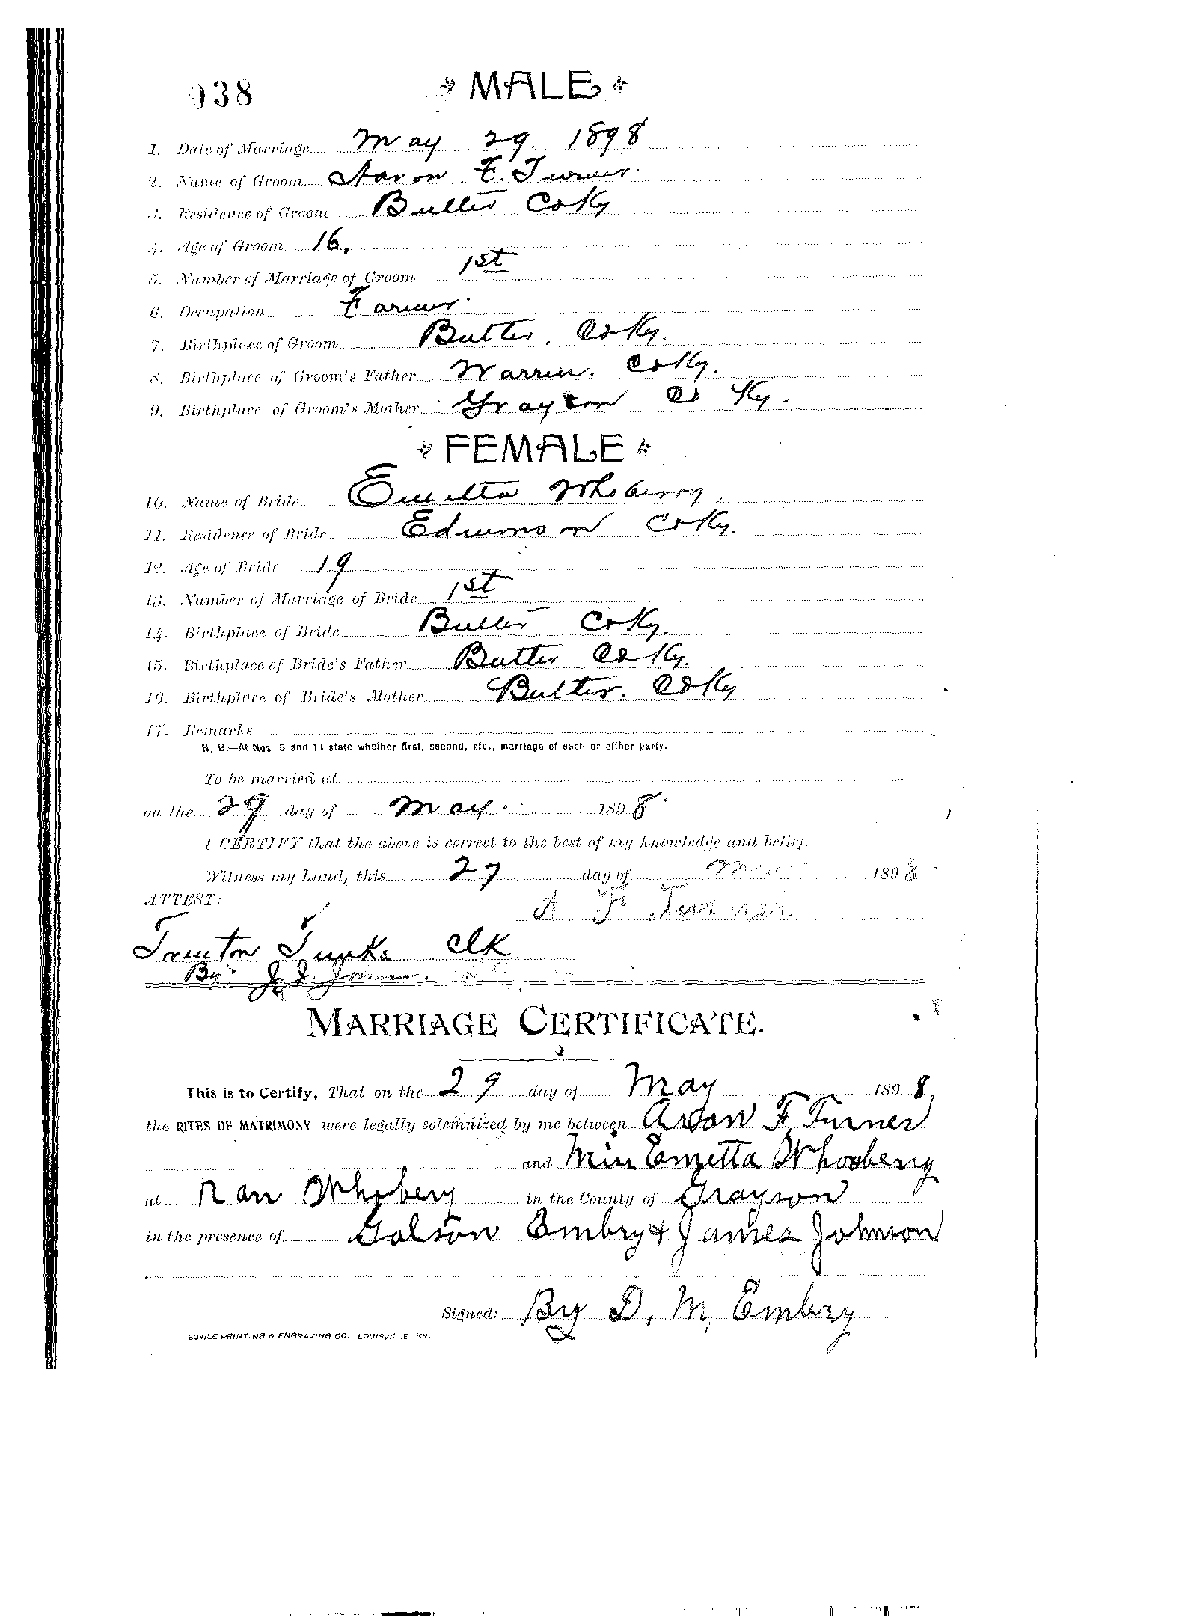 938 MALE
1. Date of Marriage May 29 1898
2. Name of Groom Aaron F. Turner.
3. Residence of Groom Butler Co Ky
4. Age of Groom 16.
5. Number of Marriage of Groom 1st
6. Occupation Farmer.
7. Birthplace of Groom Butler. Co Ky.
8. Birthplace of Groom's Father Warren. Co Ky.
9. Birthplace of Groom's Mother Grayson Co Ky.
FEMALE
10. Name of Bride Emetta Whoberry.
11. Residence of Bride Edmonson Co Ky.
12. Age of Bride 19
13. Number of Marriage of Bride 1st
14. Birthplace of Bride Butler Co Ky.
15. Birthplace of Bride's Father Butler Co Ky.
16. Birthplace of Bride's Mother Butler. Co Ky
17. Remarks
N. B.—At Nos. 5 and 11 state whether first, second, etc., marriage of each or either party.
To be married at
on the 29 day of May 1898.
I CERTIFY that the above is correct to the best of my knowledge and belief.
Witness my hand, this 27 day of May 1898
ATTEST: A F Turner
Clk
By
MARRIAGE CERTIFICATE.
This is to Certify, That on the 29 day of May 1898,
the RITES OF MATRIMONY were legally solemnized by me between Aron F. Turner
and Miss Emetta Whoobery
at Ran Whobery in the County of Grayson
in the presence of Golson Embry & James Johnson
Signed: By D. M. Embry